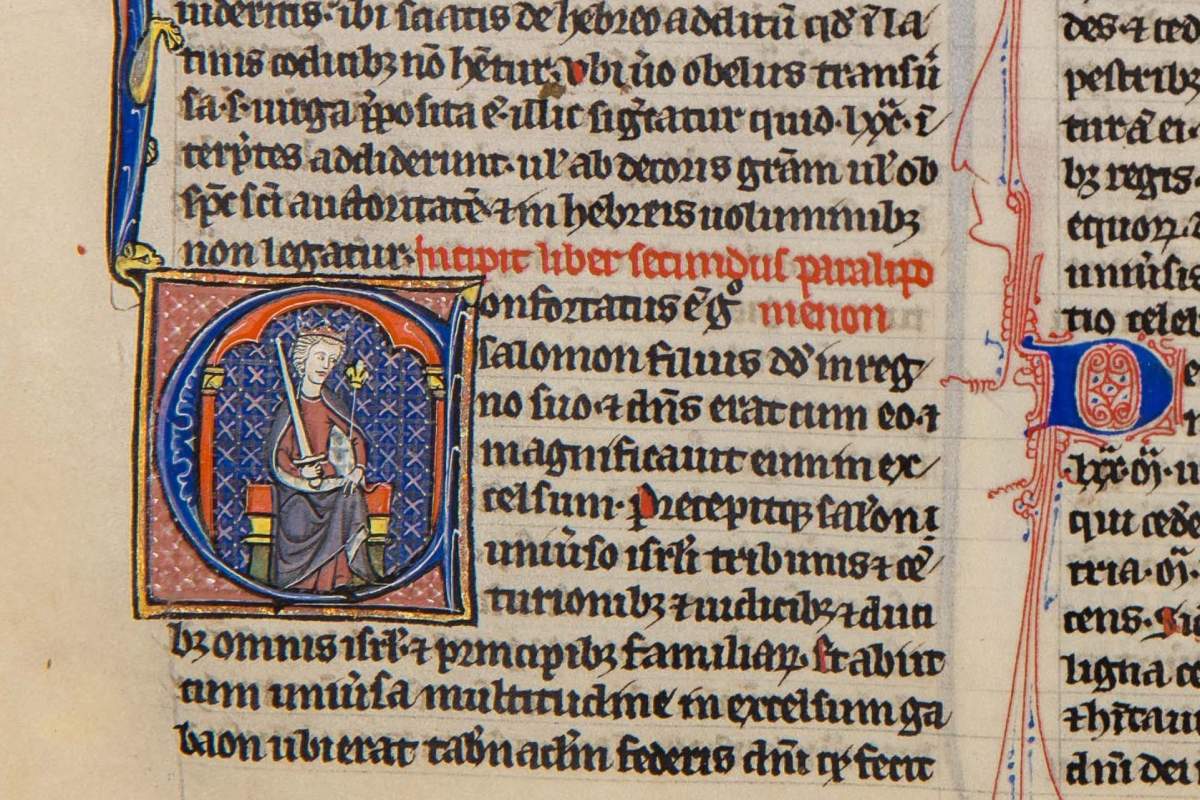 uideritis· ibi sciatis de hebreo additū qd̛ ī la/
tinis codicibꝫ nō hētur· vbi ūo obelus transū
sa·s· uirga p̄posita ē· illic sig̅tatur quid·lxx̄·ī
terp̄tes addiderunt· ul' ab decoris grām ul' ob
sp̄c sc̄i auctoritatē· ⁊ in hebreis uoluminibꝫ
non legatur· Incipit liber secundus paralipo
onfortatus ē gͦ menon
salomon filius dd̄ in reg/
no suo· ⁊ dn̄s erat cum eo· ⁊
magnificauit eum in ex/
celsum· Precepitqꝫ sal'oni
uniūso isrl̄i tribunis ⁊ cē/
turionibꝫ ⁊ iudicibꝫ ⁊ duci
bꝫ omnis isrl̄· ⁊ principibꝫ familiaꝝ· Et abiit
cum uniūsa multitudine in excelsum ga
baon ubi erat tab̄naclm̄ federis dn̄i qꝫ fecit
des· ⁊ ced
pestribꝫ
turā ei·
bꝫ regis·
equoꝝ·
uniūsis
tio celeb
D e
·lxx·
qui cedē
tria·
cens·
ligna ce
⁊ hītau
dn̄i dei